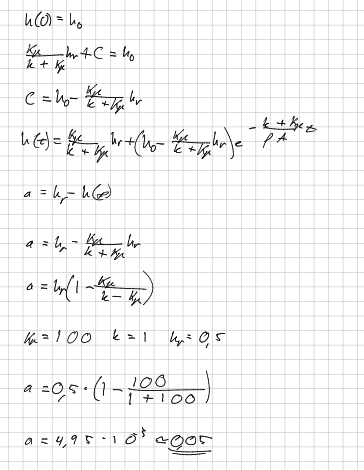 h(0) = h₀
Kₚ/(k + Kₚ) hᵣ + C = h₀
C = h₀ - Kₚ/(k + Kₚ) hᵣ
h(t) = Kₚ/(k + Kₚ) hᵣ + (h₀ - Kₚ/(k + Kₚ) hᵣ) e^(-(k + Kₚ)/(ρA) t)
a = hᵣ - h(∞)
a = hᵣ - Kₚ/(k + Kₚ) hᵣ
a = hᵣ(1 - Kₚ/(k - Kₚ))
Kₚ = 100 k = 1 hᵣ = 0,5
a = 0,5 · (1 - 100/(1 + 100))
a = 4,95 · 10⁻³ ≈ 0,05